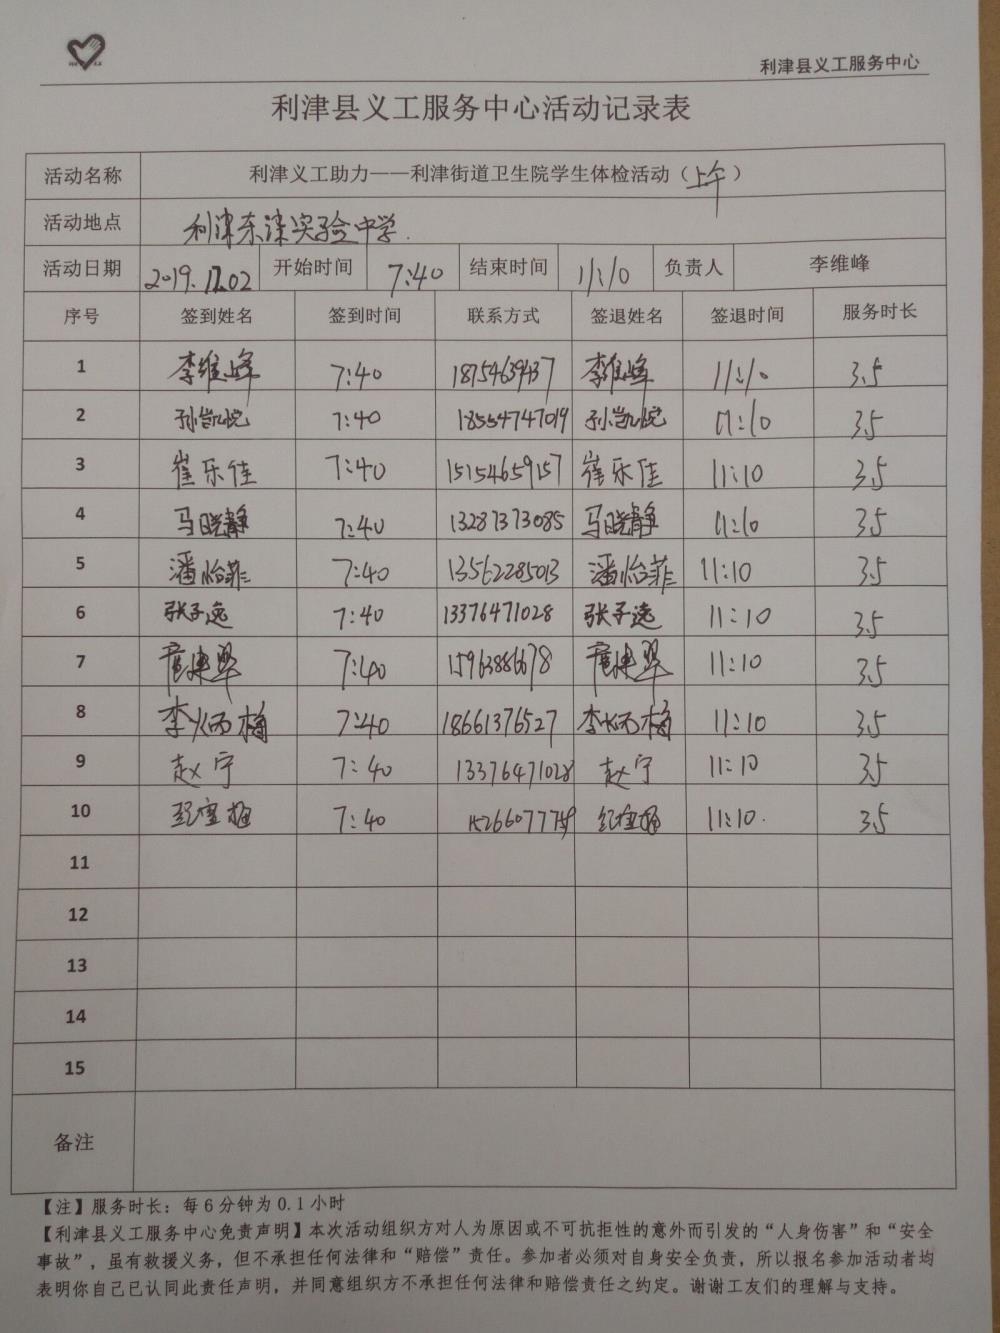 利津县义工服务中心
利津县义工服务中心活动记录表
活动名称 利津义工助力——利津街道卫生院学生体检活动（上午）
活动地点 利津东津实验中学.
活动日期 2019.11.02 开始时间 7:40 结束时间 11:10 负责人 李维峰
序号 签到姓名 签到时间 联系方式 签退姓名 签退时间 服务时长
1 李维峰 7:40 18754639437 李维峰 11:10 3.5
2 孙凯悦 7:40 18554747019 孙凯悦 11:10 3.5
3 崔乐佳 7:40 15154659157 崔乐佳 11:10 3.5
4 马晓静 7:40 13287373085 马晓静 11:10 3.5
5 潘怡菲 7:40 13562285013 潘怡菲 11:10 3.5
6 张子逸 7:40 13376471028 张子逸 11:10 3.5
7 7:40 15963886678 11:10 3.5
8 李炳梅 7:40 18661376527 李炳梅 11:10 3.5
9 赵宁 7:40 13376471028 赵宁 11:10 3.5
10 7:40 11:10. 3.5
11
12
13
14
15
备注
【注】服务时长：每6分钟为0.1小时
【利津县义工服务中心免责声明】本次活动组织方对人为原因或不可抗拒性的意外而引发的“人身伤害”和“安全
事故”，虽有救援义务，但不承担任何法律和“赔偿”责任。参加者必须对自身安全负责，所以报名参加活动者均
表明你自己已认同此责任声明，并同意组织方不承担任何法律和赔偿责任之约定。谢谢工友们的理解与支持。